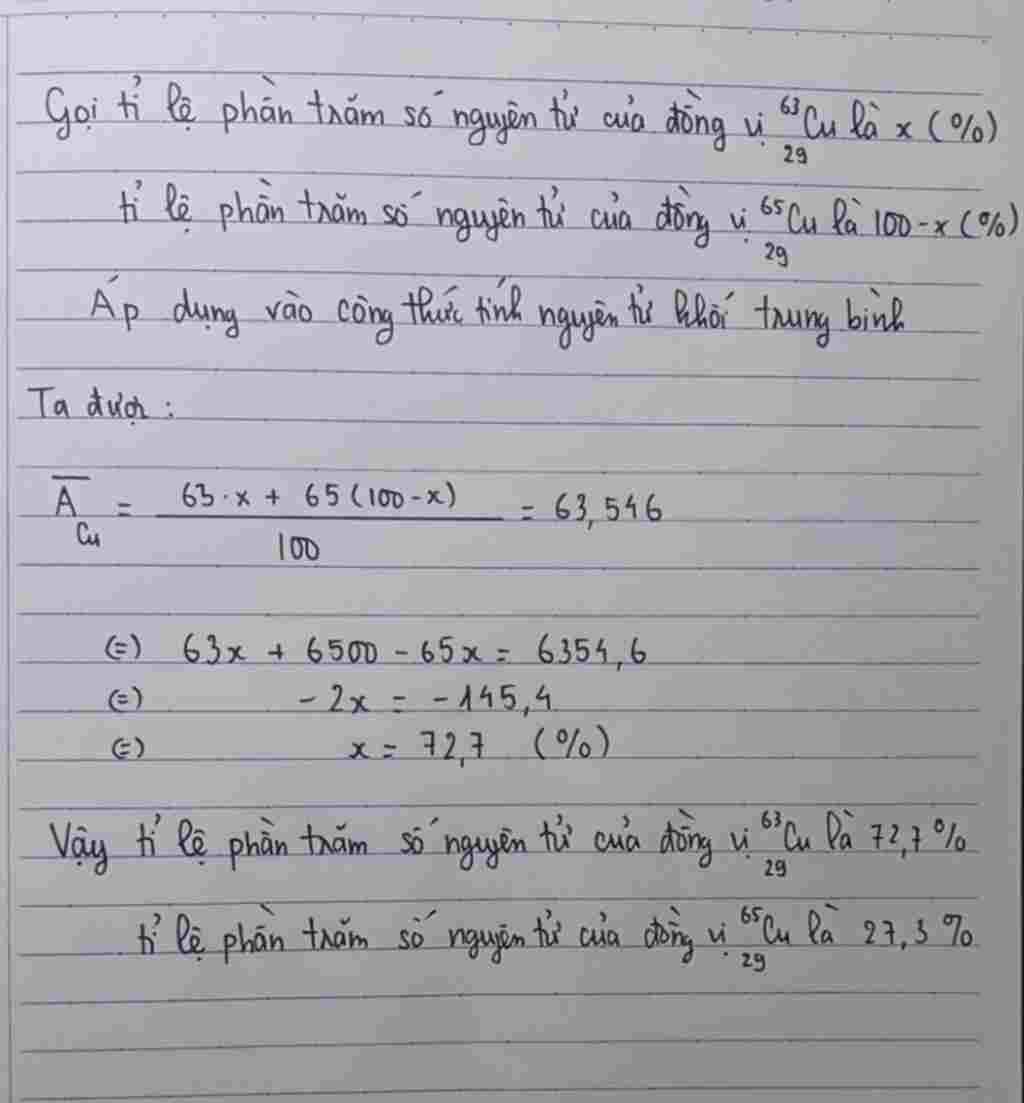 Gọi tỉ lệ phần trăm số nguyên tử của đồng vị ⁶³₂₉Cu là x (%)
tỉ lệ phần trăm số nguyên tử của đồng vị ⁶⁵₂₉Cu là 100-x (%)
Áp dụng vào công thức tính nguyên tử khối trung bình
Ta được :
A̅_Cu = (63·x + 65(100-x))/100 = 63,546
(=) 63x + 6500 - 65x = 6354,6
(=) -2x = -145,4
(=) x = 72,7 (%)
Vậy tỉ lệ phần trăm số nguyên tử của đồng vị ⁶³₂₉Cu là 72,7%
tỉ lệ phần trăm số nguyên tử của đồng vị ⁶⁵₂₉Cu là 27,3%